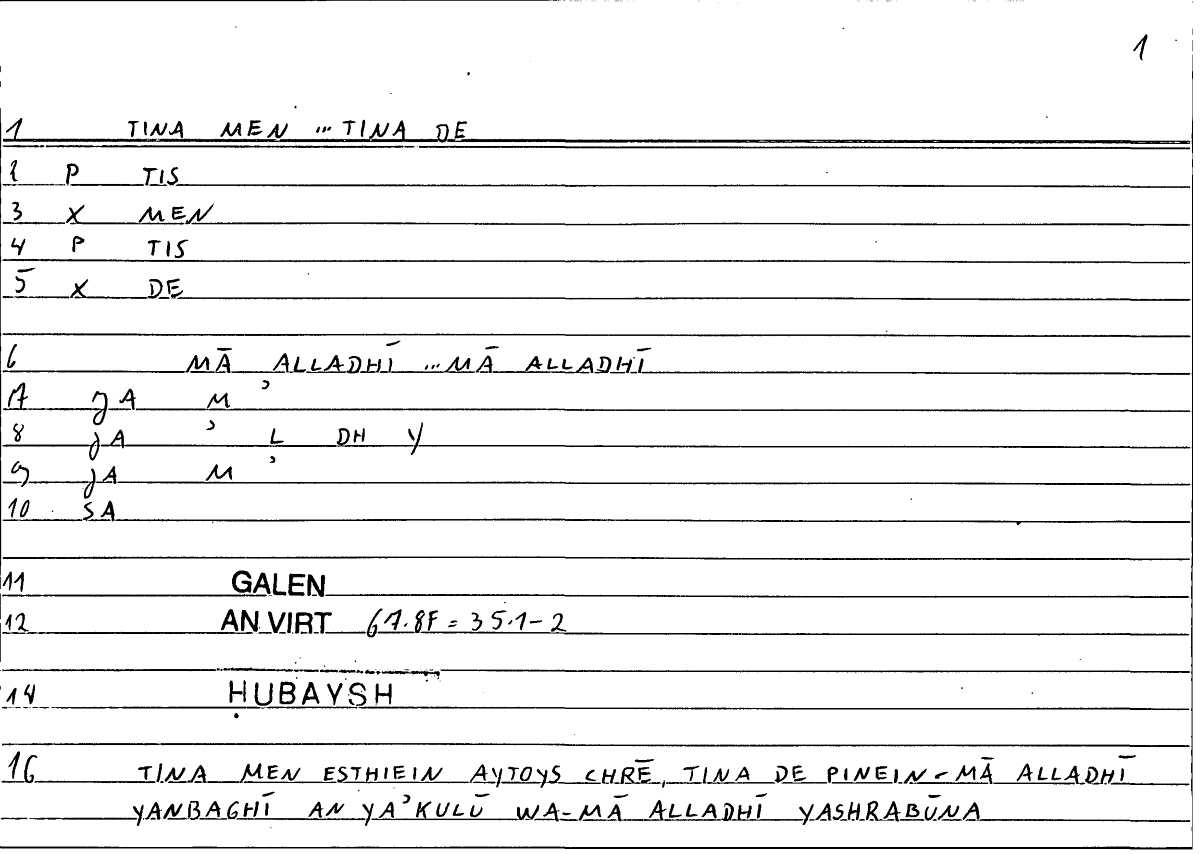 1
1 TINA MEN ... TINA DE
2 P TIS
3 X MEN
4 P TIS
5 X DE
6 MĀ ALLADHĪ ... MĀ ALLADHĪ
7 JA M ʾ
8 JA ʾ L DH Y
9 JA M ʾ
10 SA
11 GALEN
12 AN VIRT 67.8F = 35.1-2
14 ḤUBAYSH
16 TINA MEN ESTHIEIN AYTOYS CHRĒ, TINA DE PINEIN - MĀ ALLADHĪ
YANBAGHĪ AN YAʾKULŪ WA-MĀ ALLADHĪ YASHRABŪNA